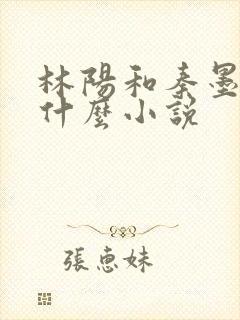 林陽和秦墨
什麼小說
張惠妹